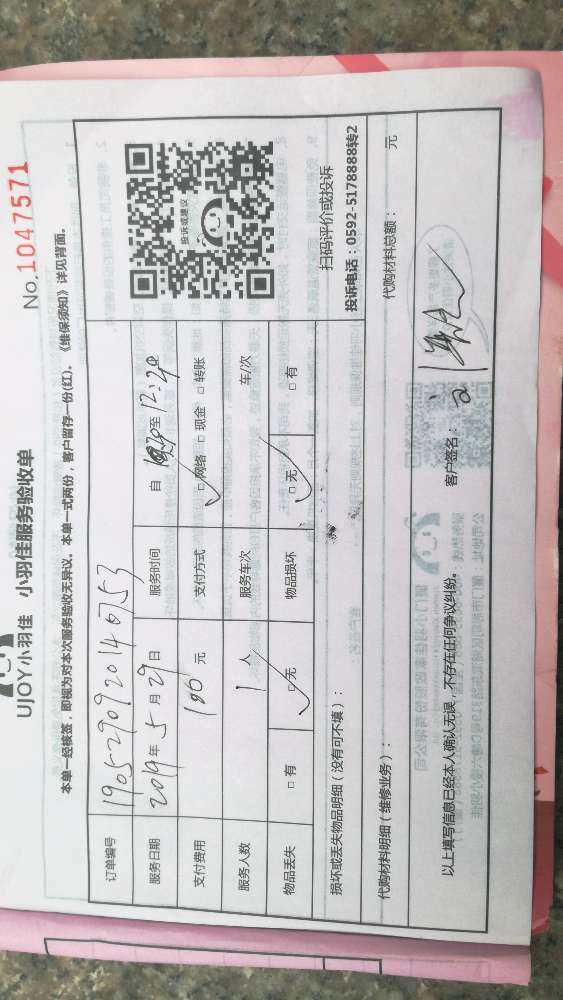 UJOY小羽佳 小羽佳服务验收单
No.1047571
本单一经核签，即视为对本次服务验收无异议。本单一式两份，客户留存一份(红)。《维保须知》详见背面。
订单编号 1905290920140753
服务日期 2019年5月29日 服务时间 自 至12:20
支付费用 180元 支付方式 □网络 □现金 □转账
服务人数 1人 服务车次 车/次
物品丢失 □有 □无 物品损坏 □无 □有
投诉或建议
扫码评价或投诉
投诉电话：0592-5178888转2
损坏或丢失物品明细（没有可不填）：
代购材料明细（维修业务）： 代购材料总额： 元
以上填写信息已经本人确认无误，不存在任何争议纠纷。 客户签名：